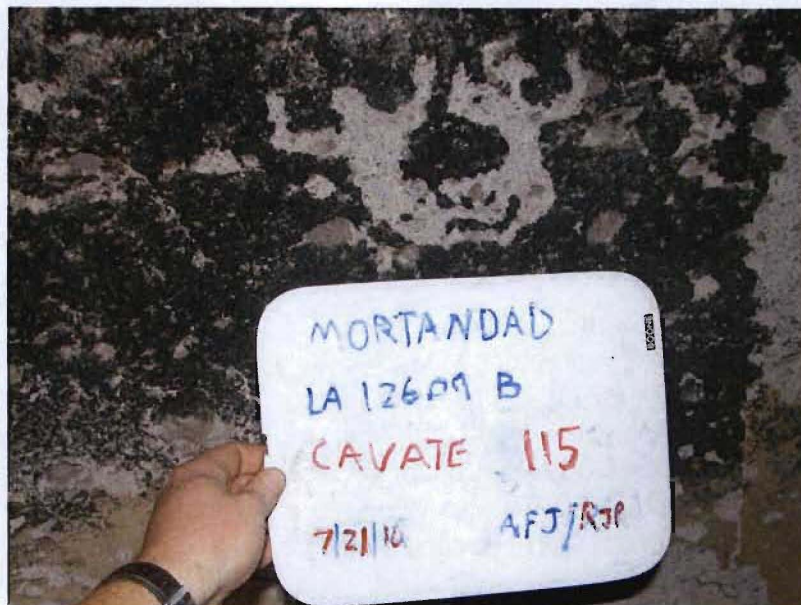 MORTANDAD
BOONE
LA 12609 B
CAVATE 115
7/21/10 AFJ/RJP